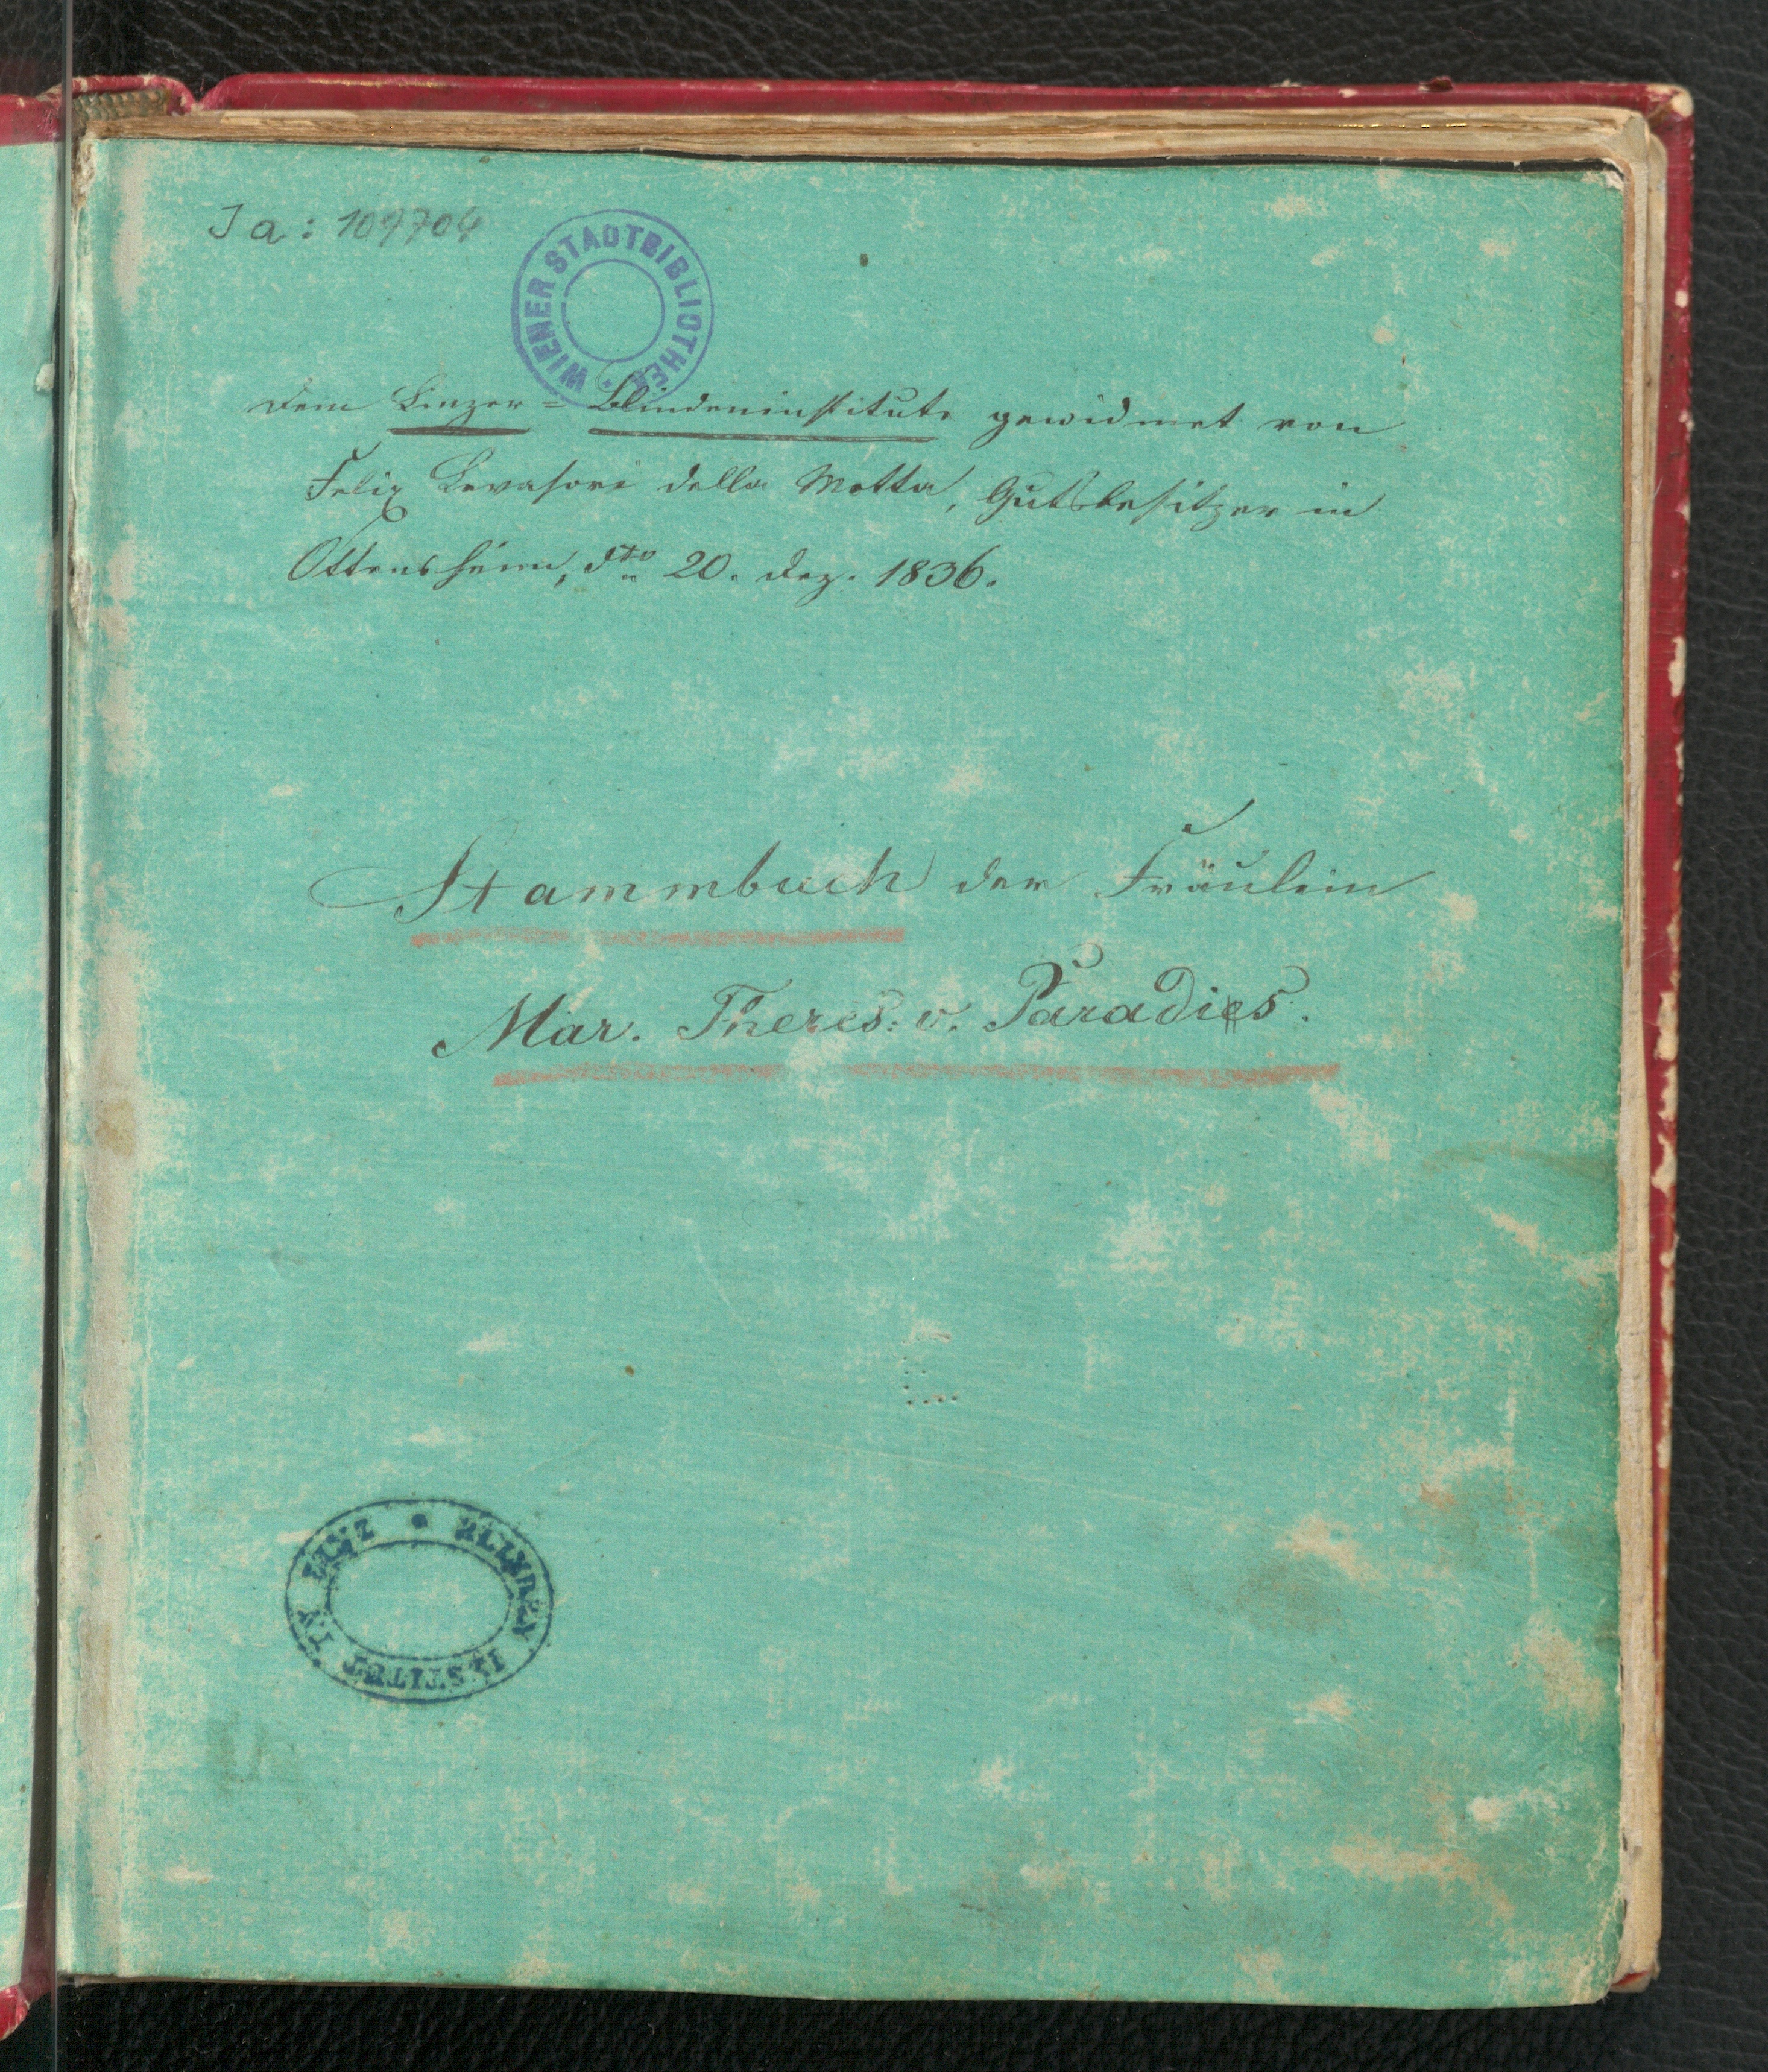 Ja: 109704
WIENER STADTBIBLIOTHEK
Dem Linzer=Blindeninstitute gewidmet von
Felix Levasori della Motta, Gutsbesitzer in
Ottensheim, dto 20. Dez. 1836.
Stammbuch der Fräulein
Mar. Theres: v. Paradies.
BLINDEN INSTITUT IN LINZ